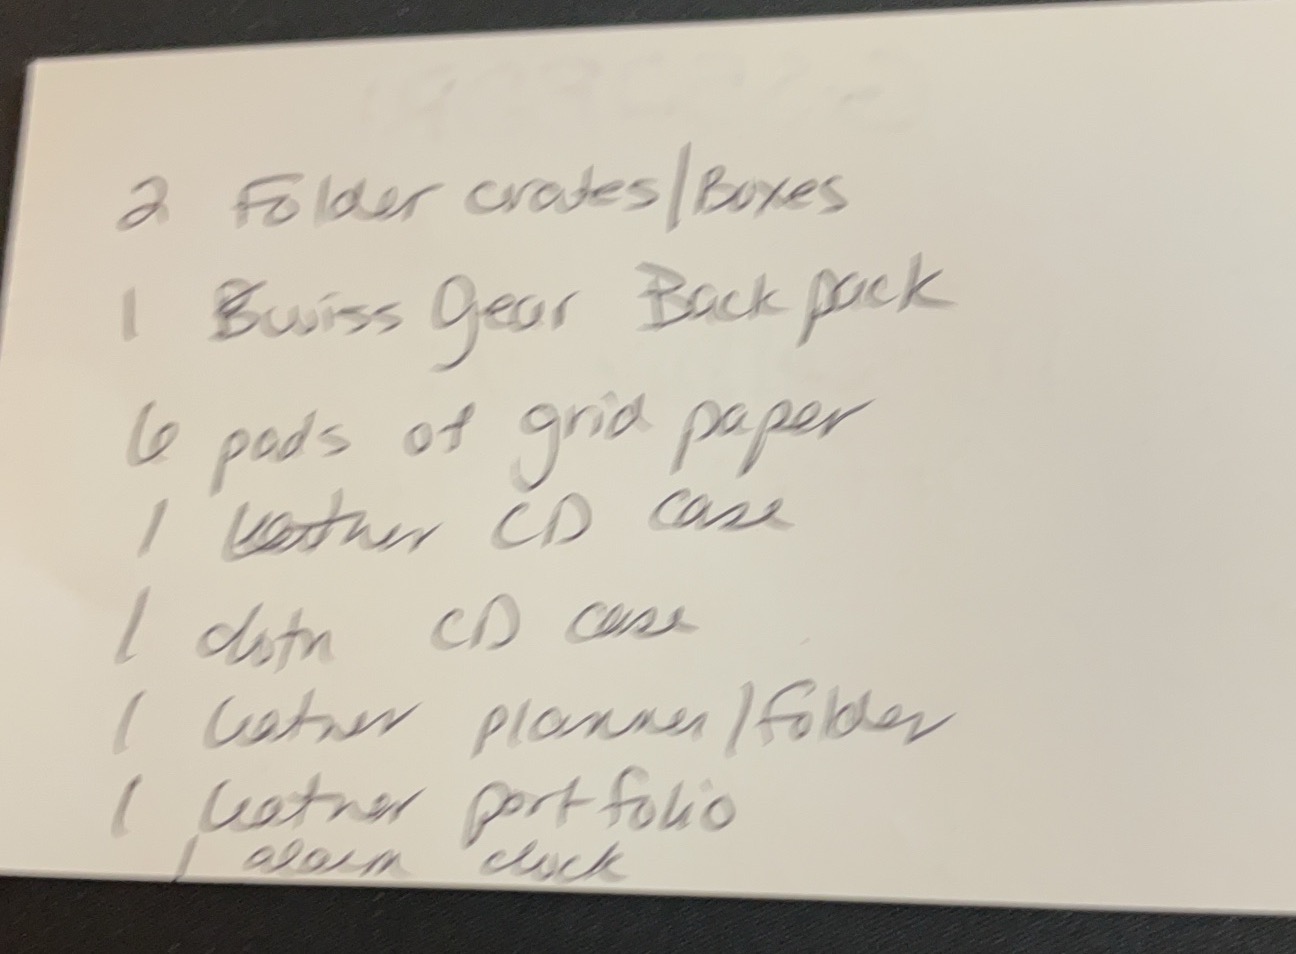 2 Folder crates/Boxes
1 Swiss Gear Backpack
6 pads of grid paper
1 leather CD case
1 cloth CD case
1 leather planner/folder
1 leather portfolio
1 alarm clock